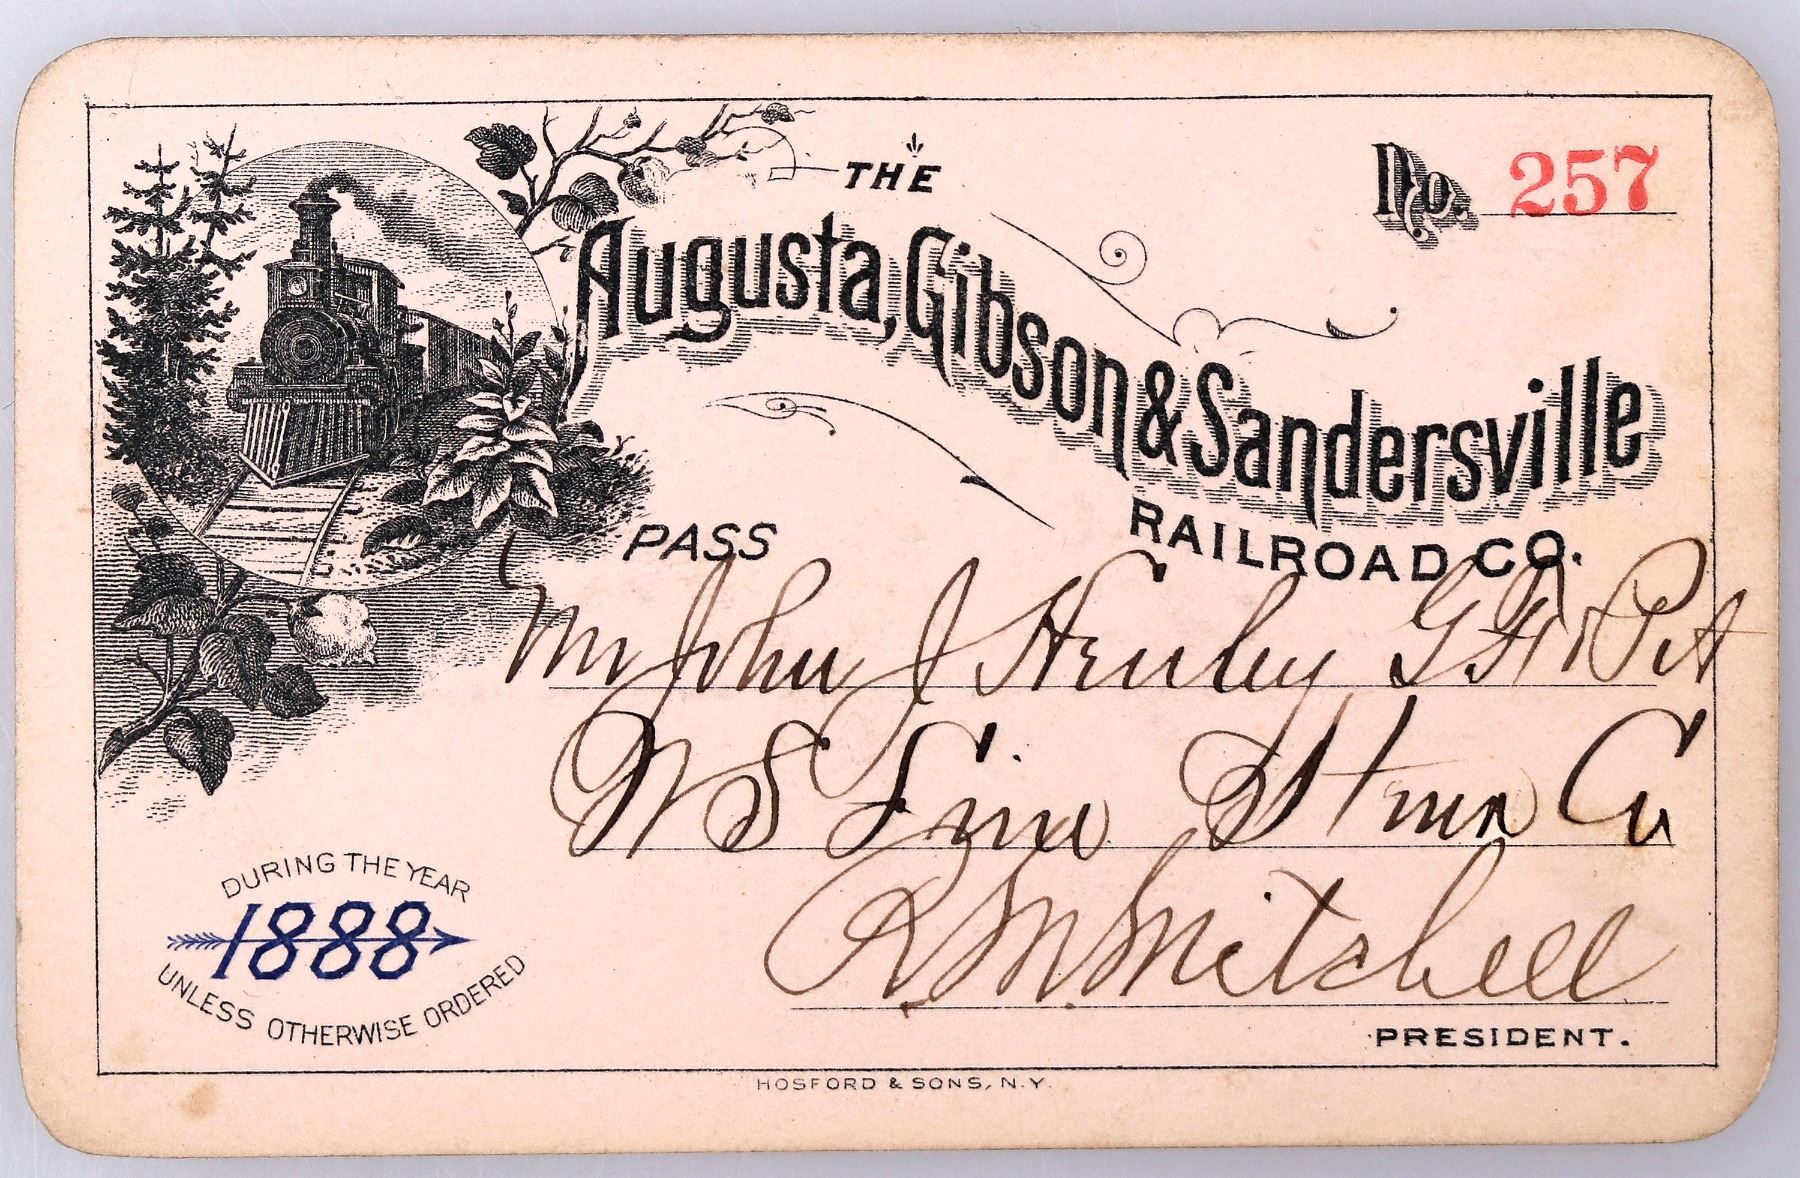 THE
No. 257
Augusta, Gibson & Sandersville
RAILROAD CO.
PASS
Mr John J Henley G F & P A
N S Line Steam Co
R M Mitchell
PRESIDENT.
DURING THE YEAR
1888
UNLESS OTHERWISE ORDERED
HOSFORD & SONS, N.Y.